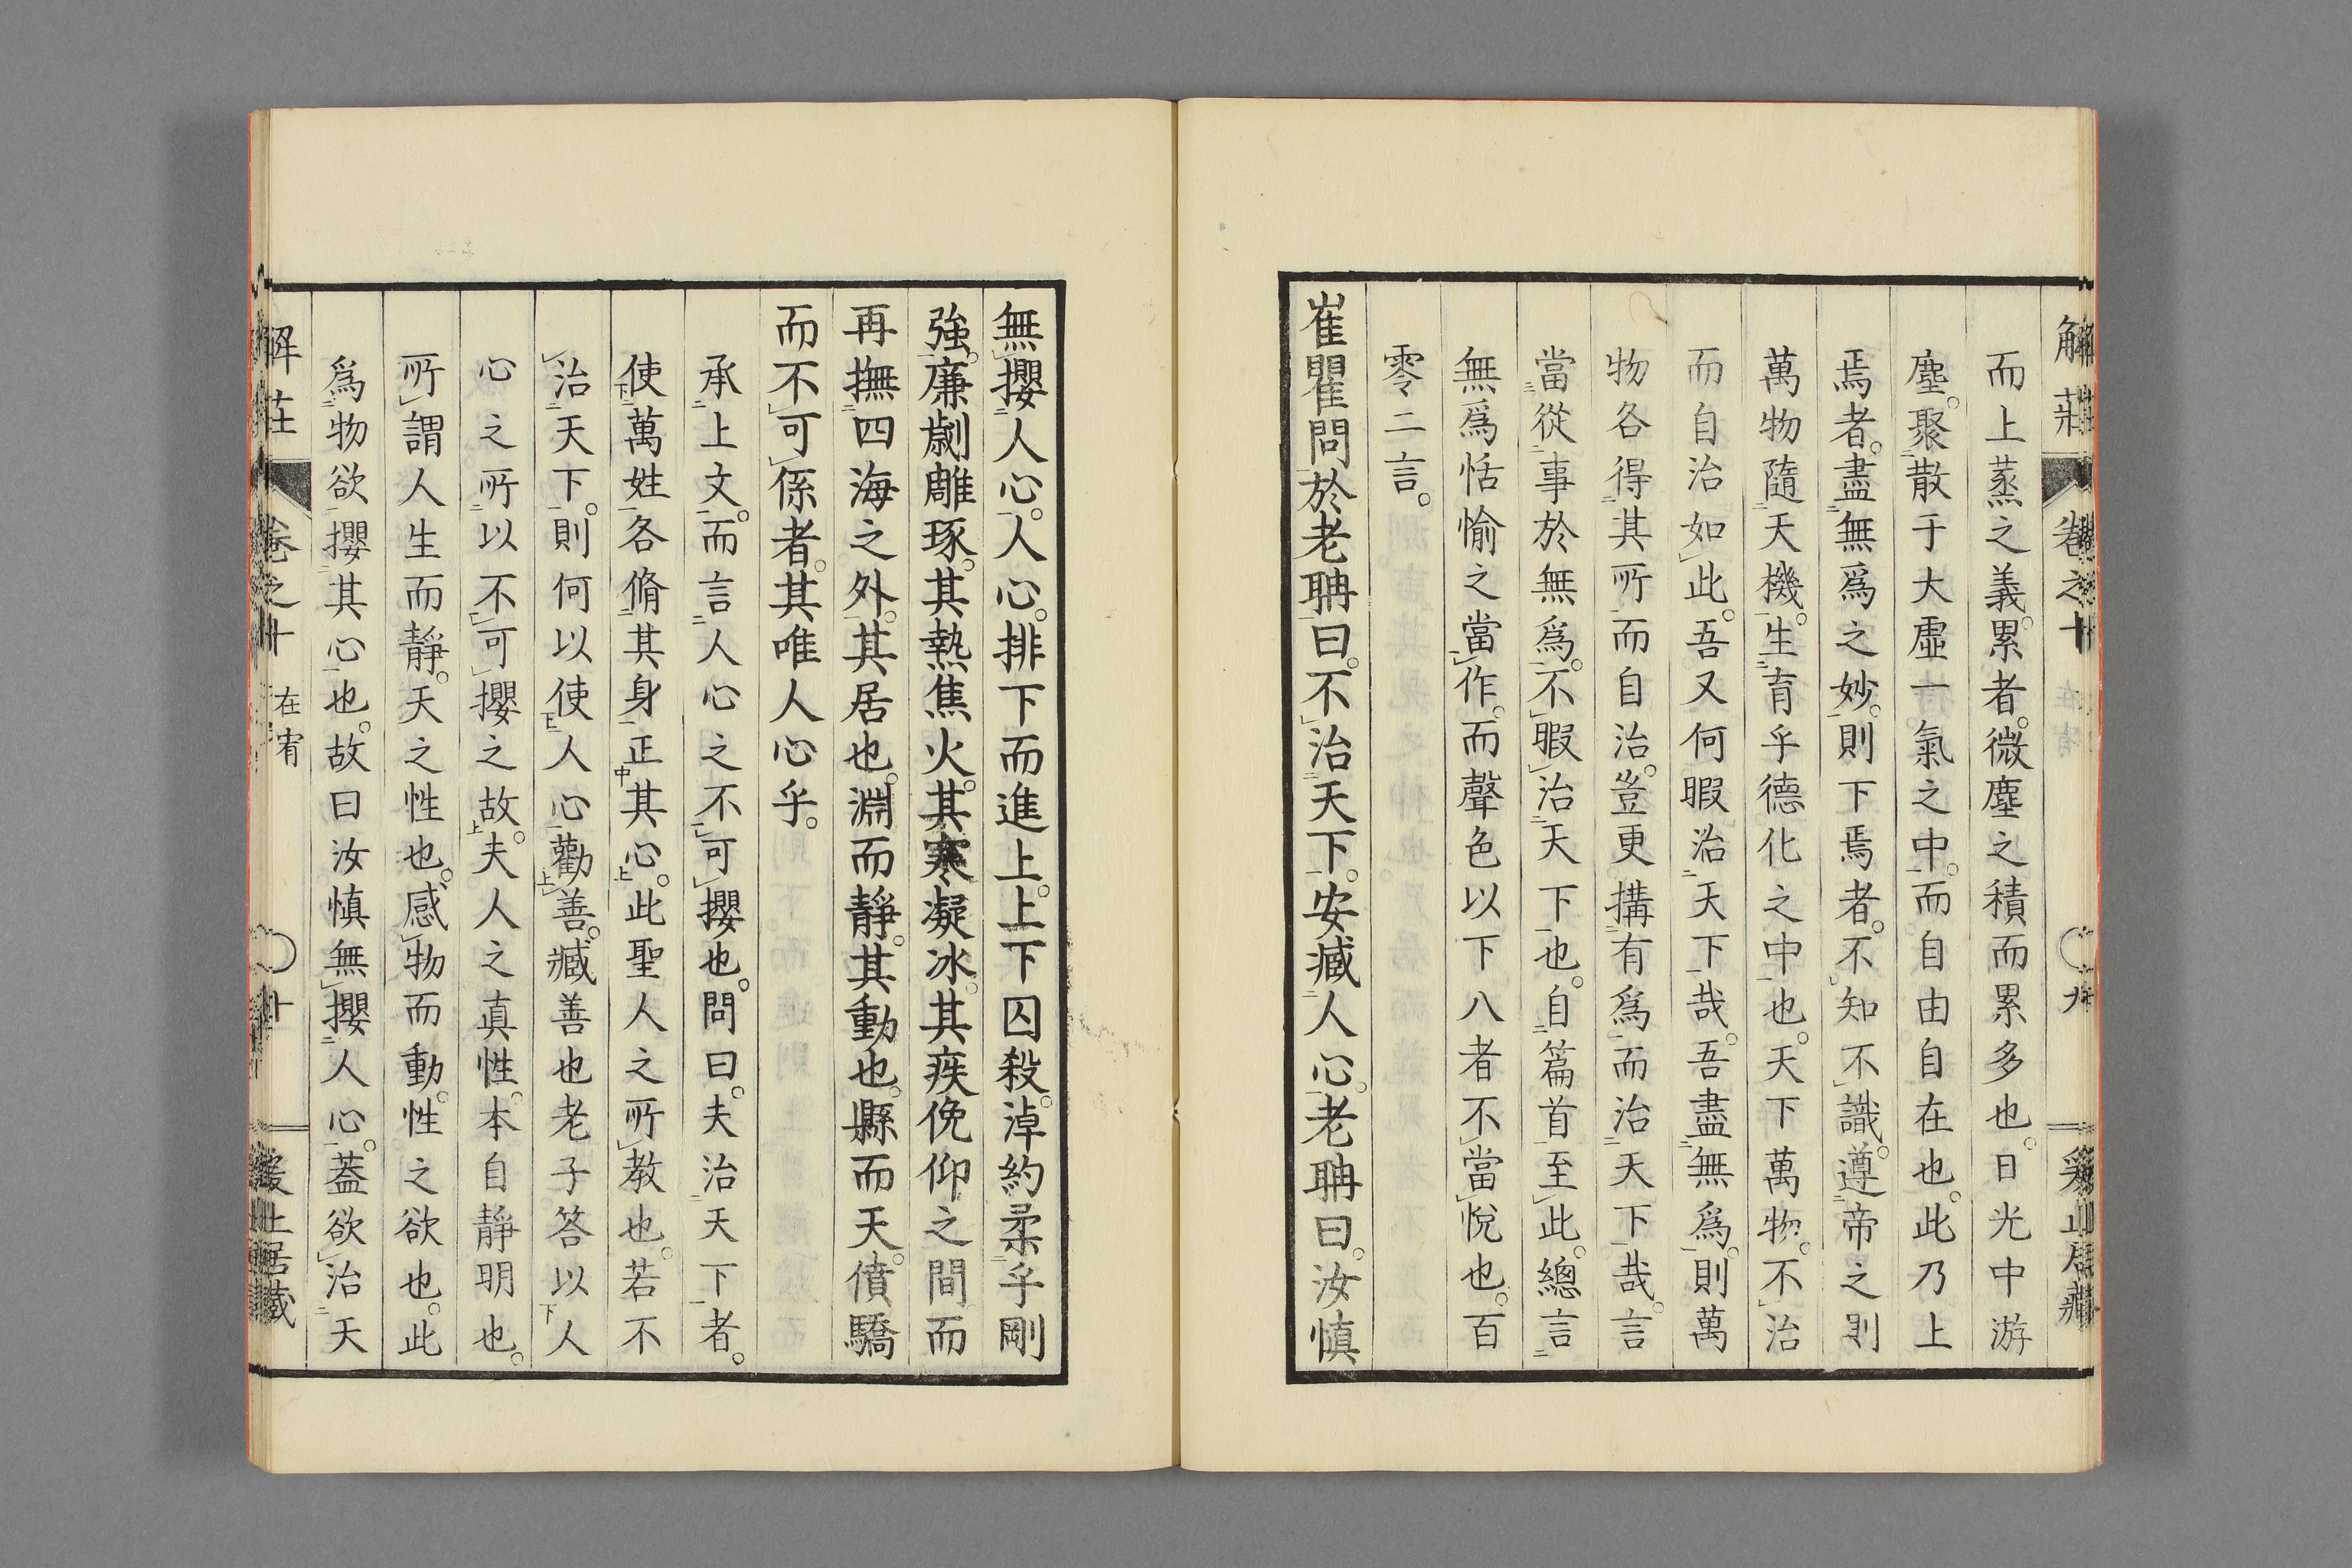 解莊 卷之十 九
而上蒸之義。累者。微塵之積而累多也。日光中游
塵。聚散于大虛一氣之中。而自由自在也。此乃上
焉者。盡無爲之妙。則下焉者。不知不識。遵帝之則
萬物隨天機。生育乎德化之中也。天下萬物。不治
而自治如此。吾又何暇治天下哉。吾盡無爲。則萬
物各得其所而自治。豈更搆有爲而治天下哉。言
當從事於無爲。不暇治天下也。自篇首至此。總言
無爲恬愉之當作。而聲色以下八者不當悅也。百
零二言。
崔瞿問於老聃曰。不治天下。安臧人心。老聃曰。汝慎
無攖人心。人心。排下而進上。上下囚殺。淖約柔乎剛
強。廉劌雕琢。其熱焦火。其寒凝冰。其疾俛仰之間而
再撫四海之外。其居也。淵而靜。其動也。縣而天。僨驕
而不可係者。其唯人心乎。
承上文。而言人心之不可攖也。問曰。夫治天下者。
使萬姓各脩其身正其心。此聖人之所教也。若不
治天下。則何以使人心勸善。臧善也老子答以人
心之所以不可攖之故。夫人之真性。本自靜明也。
所謂人生而靜。天之性也。感物而動。性之欲也。此
爲物欲攖其心也。故曰汝慎無攖人心。蓋欲治天
解莊 卷之十 在宥 十